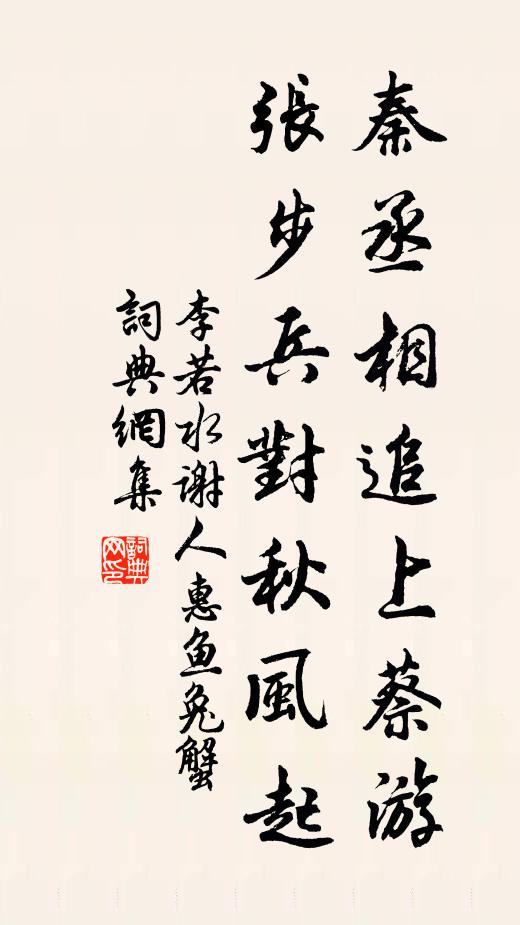 秦丞相追上蔡游
張步兵對秋風起
李若水谢人惠鱼兔蟹
詞典網集
詞典網印